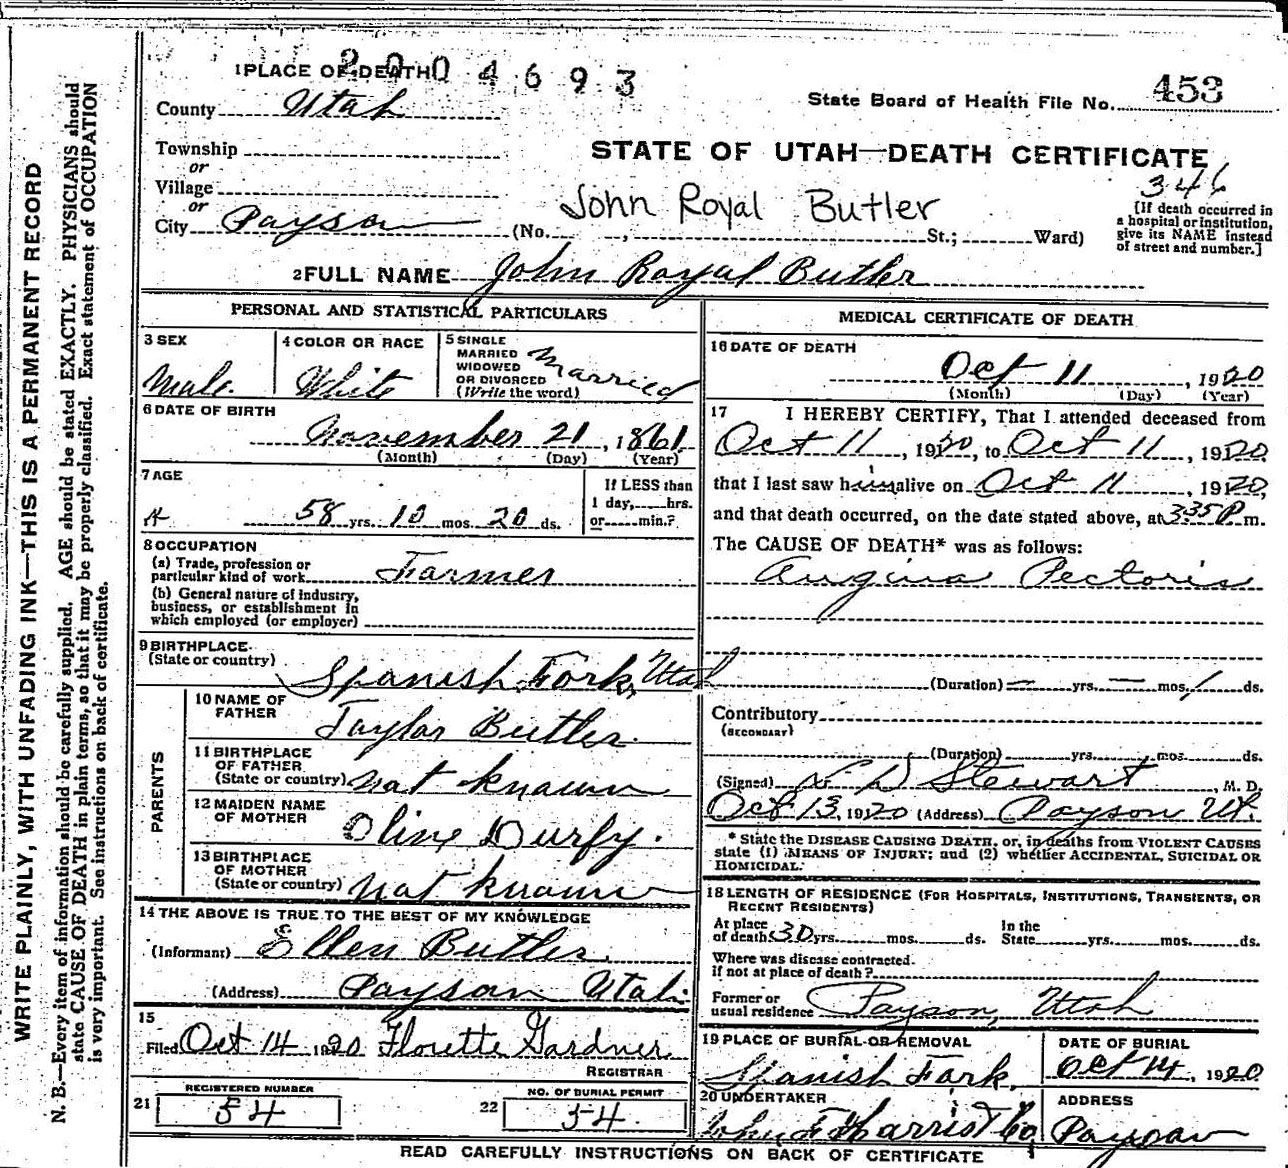 2004693
1 PLACE OF DEATH
State Board of Health File No. 453
County Utah
Township
STATE OF UTAH—DEATH CERTIFICATE
or
Village
346
or
John Royal Butler
[If death occurred in a hospital or institution, give its NAME instead of street and number.]
City Payson (No. , St.; Ward)
2 FULL NAME John Royal Butler
PERSONAL AND STATISTICAL PARTICULARS
3 SEX
Male
4 COLOR OR RACE
White
5 SINGLE
MARRIED
WIDOWED
OR DIVORCED
(Write the word)
Married
6 DATE OF BIRTH
November 21, 1861
(Month) (Day) (Year)
7 AGE
58 yrs. 10 mos. 20 ds.
If LESS than
1 day, hrs.
or min.?
8 OCCUPATION
(a) Trade, profession or
particular kind of work Farmer
(b) General nature of industry,
business, or establishment in
which employed (or employer)
9 BIRTHPLACE
(State or country) Spanish Fork, Utah
PARENTS
10 NAME OF
FATHER
Taylor Butler.
11 BIRTHPLACE
OF FATHER
(State or country) not known
12 MAIDEN NAME
OF MOTHER
Olive Durfy.
13 BIRTHPLACE
OF MOTHER
(State or country) not known
14 THE ABOVE IS TRUE TO THE BEST OF MY KNOWLEDGE
(Informant) Ellen Butler.
(Address) Payson Utah.
15
Filed Oct 14 1920 Florette Gardner
REGISTRAR
21 REGISTERED NUMBER
54
22 NO. OF BURIAL PERMIT
54
MEDICAL CERTIFICATE OF DEATH
16 DATE OF DEATH
Oct 11, 1920
(Month) (Day) (Year)
17 I HEREBY CERTIFY, That I attended deceased from
Oct 11, 1920, to Oct 11, 1920
that I last saw him alive on Oct 11, 1920,
and that death occurred, on the date stated above, at 3:35 P m.
The CAUSE OF DEATH* was as follows:
Angina Pectoris
(Duration) — yrs. — mos. 1 ds.
Contributory
(SECONDARY)
(Duration) yrs. mos. ds.
(Signed) Stewart, M. D.
Oct 13, 1920 (Address) Payson Ut.
* State the DISEASE CAUSING DEATH, or, in deaths from VIOLENT CAUSES
state (1) MEANS OF INJURY; and (2) whether ACCIDENTAL, SUICIDAL OR
HOMICIDAL.
18 LENGTH OF RESIDENCE (FOR HOSPITALS, INSTITUTIONS, TRANSIENTS, OR
RECENT RESIDENTS)
At place
of death 30 yrs. mos. ds. In the
State yrs. mos. ds.
Where was disease contracted.
if not at place of death?
Former or
usual residence Payson, Utah
19 PLACE OF BURIAL OR REMOVAL
Spanish Fork.
DATE OF BURIAL
Oct 14, 1920
20 UNDERTAKER
ADDRESS
Payson
READ CAREFULLY INSTRUCTIONS ON BACK OF CERTIFICATE
WRITE PLAINLY, WITH UNFADING INK—THIS IS A PERMANENT RECORD
N. B.—Every item of information should be carefully supplied. AGE should be stated EXACTLY. PHYSICIANS should
state CAUSE OF DEATH in plain terms, so that it may be properly classified. Exact statement of OCCUPATION
is very important. See instructions on back of certificate.